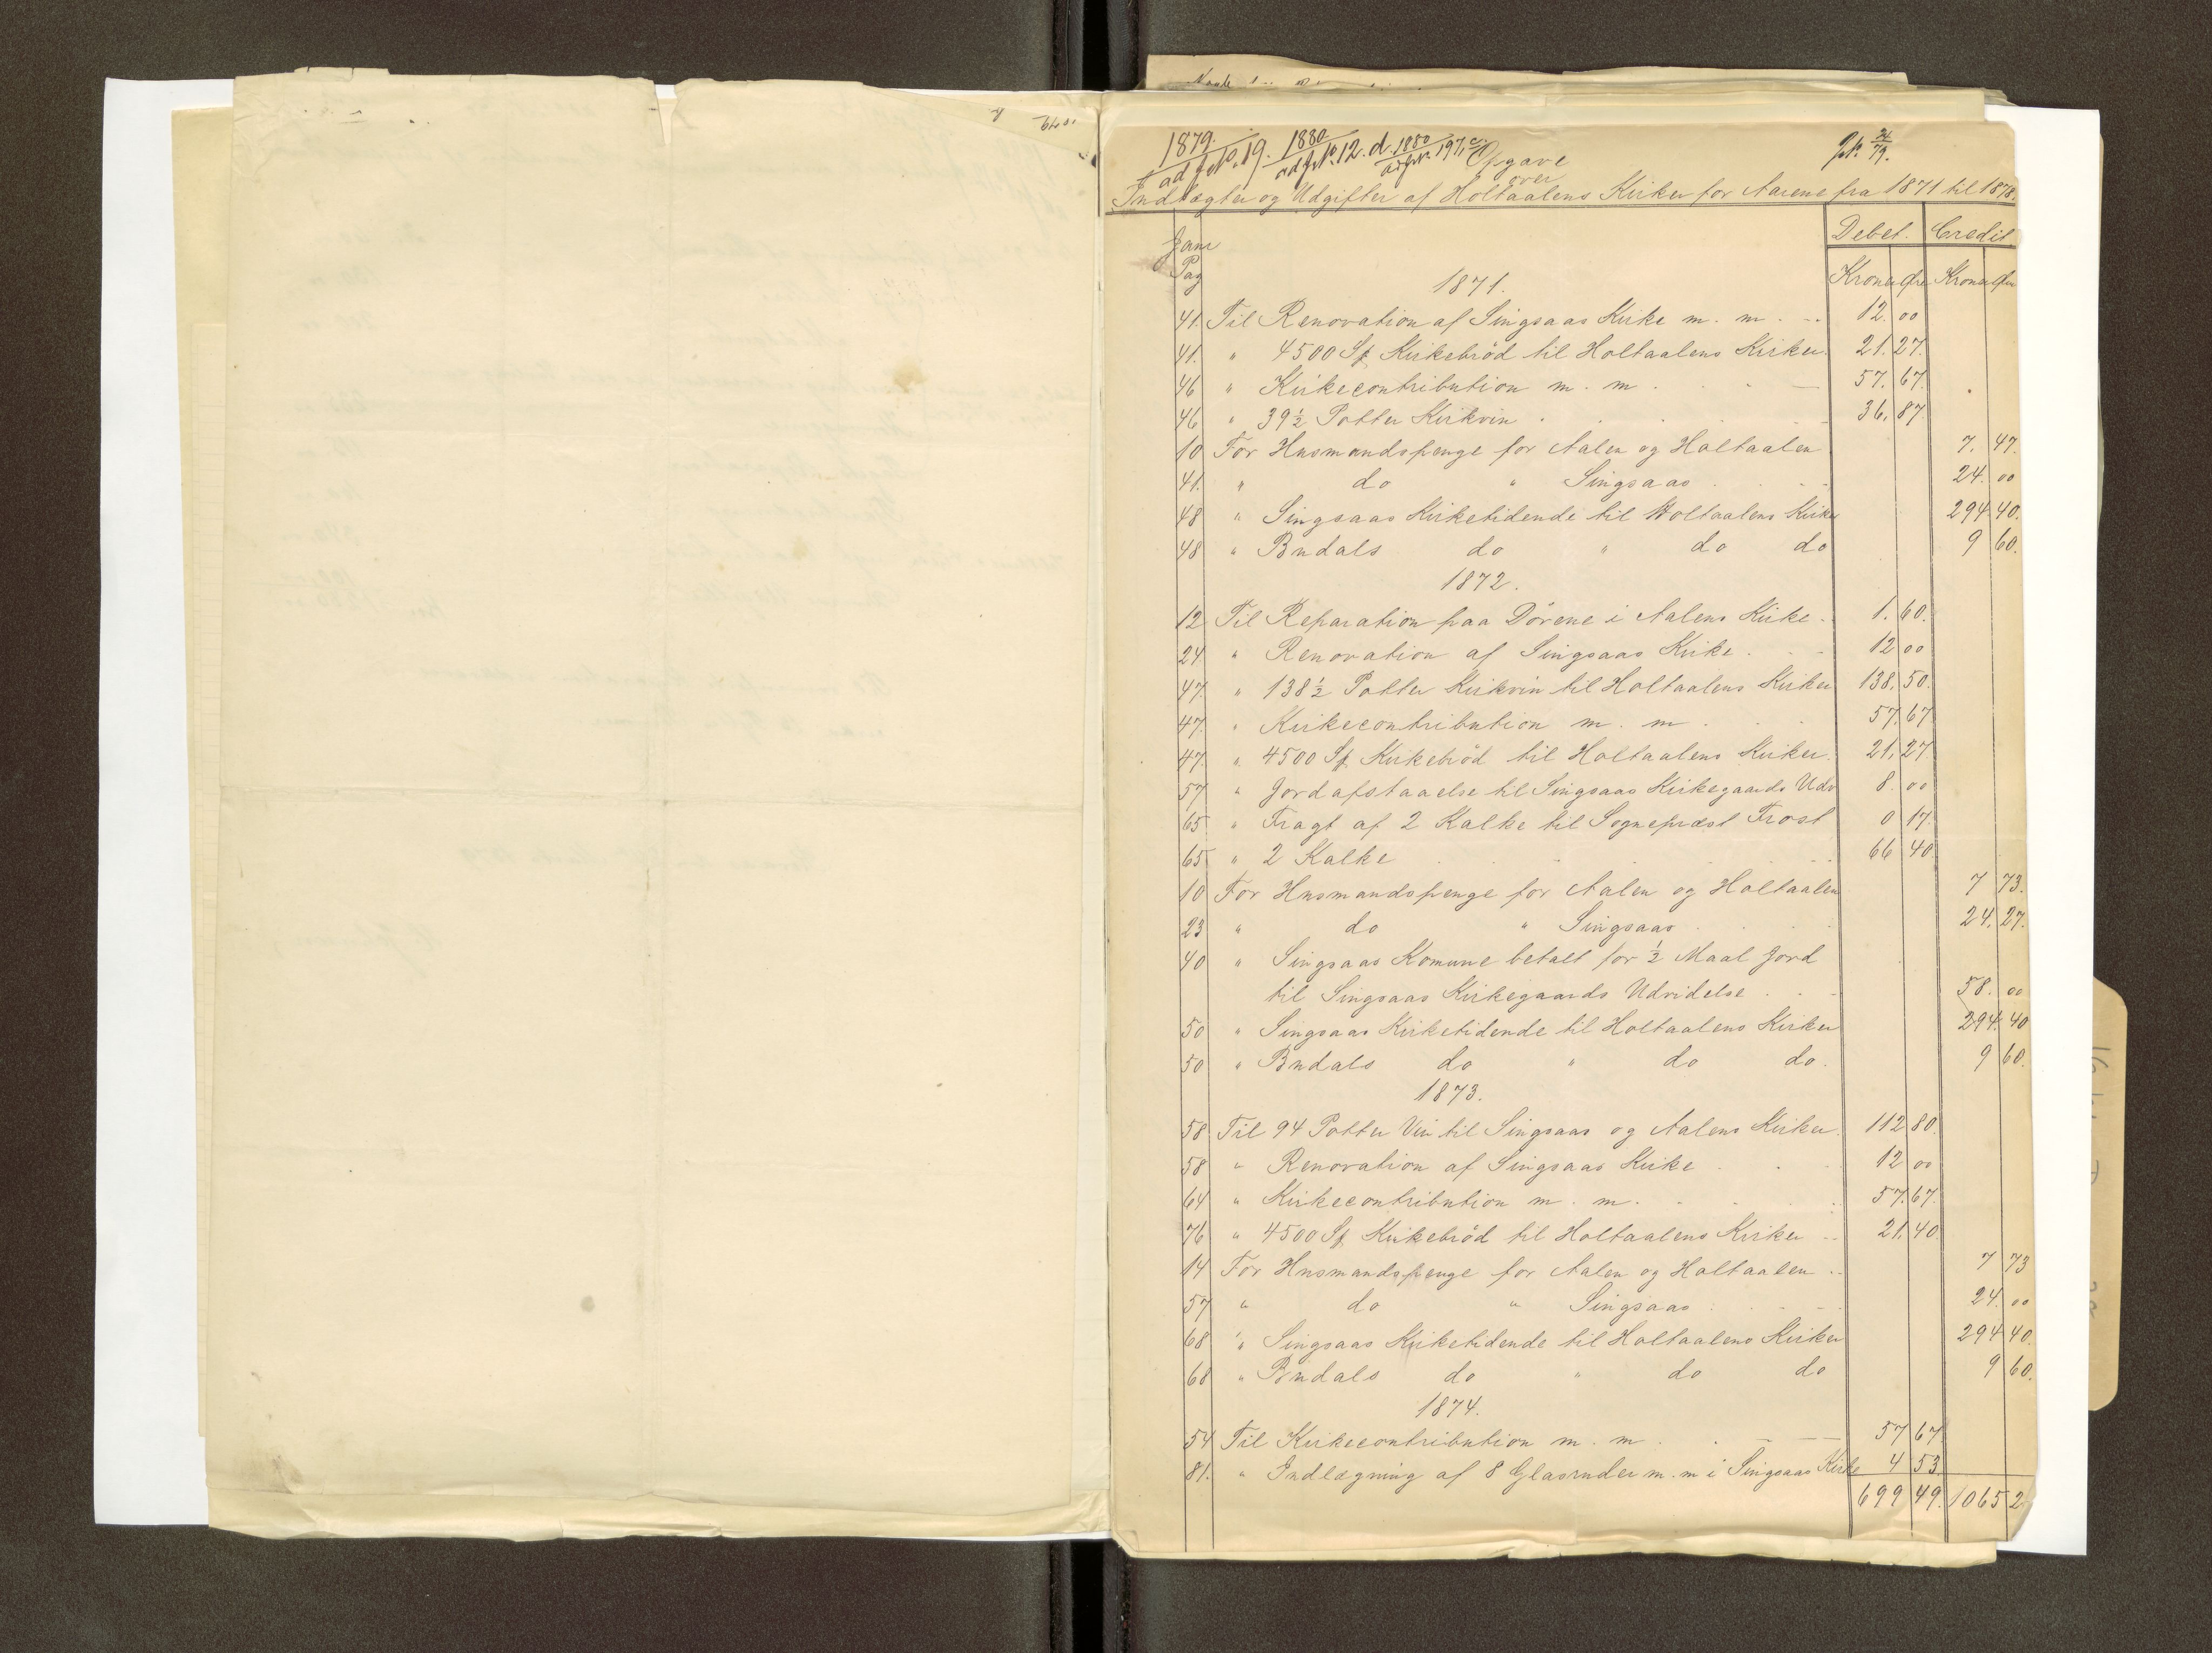 1879. 1880. 1880
ad jr. No. 19. ad jr. No. 12. d. ad jr. 197, c.
Opgave
over
Indtægter og Udgifter af Holtaalens Kirker for Aarene fra 1871 til 1878.
Debet. Credit
Pag Kroner Øre Kroner Øre
1871.
41. Til Renovation af Singsaas Kirke m. m. 12. 00
41. " 4500 Sp Kirkebröd til Holtaalens Kirker. 21. 27.
46 " Kirkecontribution m. m. 57. 67.
46 " 39½ Potter Kirkvin 36. 87
10 For Husmandspenge for Aalen og Holtaalen 7. 47.
41. " do " Singsaas 24. 00
48 " Singsaas Kirketidende til Holtaalens Kirker 294 40.
48 " Budals do " do do 9 60.
1872.
12 Til Reparation paa Dörene i Aalens Kirke. 1. 60.
24 " Renovation af Singsaas Kirke. 12 00
47. " 138½ Potter Kirkvin til Holtaalens Kirker 138. 50.
47. " Kirkecontribution m. m. 57. 67
47. " 4500 Sp Kirkebröd til Holtaalens Kirker. 21. 27.
57 " Jordafstaaelse til Singsaas Kirkegaards Udv 8. 00
65 " Fragt af 2 Kalke til Sognepræst Frost 0 17.
65 " 2 Kalke 66 40.
10 For Husmandspenge for Aalen og Holtaalen 7 73.
23 " do " Singsaas 24. 27.
40 " Singsaas Komune betalt for ½ Maal Jord
til Singsaas Kirkegaards Udvidelse 58. 00
50 " Singsaas Kirketidende til Holtaalens Kirker 294. 40
50 " Budals do " do do. 9 60.
1873.
58 Til 94 Potter Vin til Singsaas og Aalens Kirker. 112 80.
58 " Renovation af Singsaas Kirke 12 00
64 " Kirkecontribution m. m. 57. 67.
76 " 4500 Sp Kirkebröd til Holtaalens Kirker 21. 40
14 For Husmandspenge for Aalen og Holtaalen 7 73
57 " do " Singsaas 24. 00
68 " Singsaas Kirketidende til Holtaalens Kirker 294 40.
68 " Budals do " do do 9 60.
1874.
54 Til Kirkecontribution m. m. 57 67
81. " Indlægning af 8 Glasruder m. m i Singsaas Kirke 4 53
699 49. 1065 2